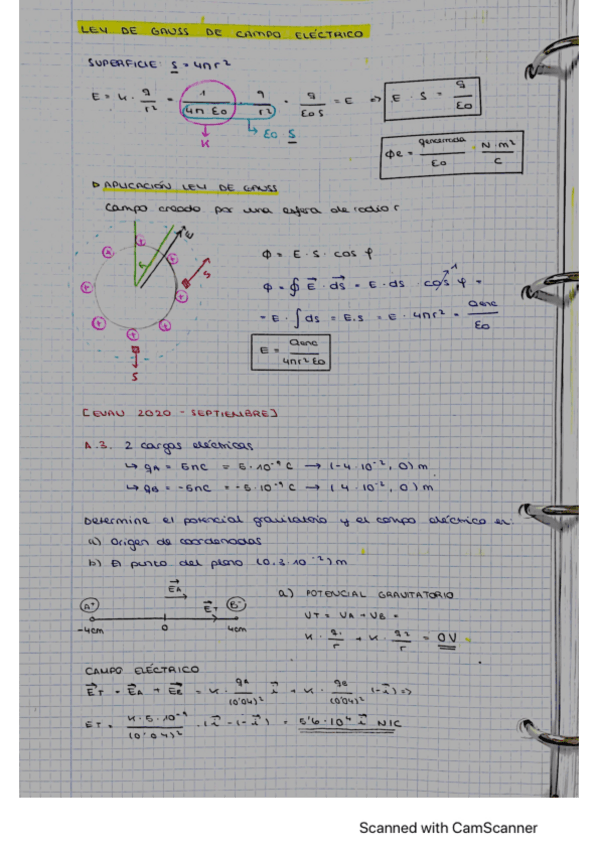 LEY DE GAUSS DE CAMPO ELÉCTRICO
SUPERFICIE: S = 4πr²
E = K · q/r² = 1/(4π ε0) · q/r² = q/(ε0 S) = E ⇒ E · S = q/ε0
K
ε0 S
Φe = qencerrada/ε0 N·m²/C
▷ APLICACIÓN LEY DE GAUSS
Campo creado por una esfera de radio r
E
S
S
Φ = E · S · cos φ
Φ = ∮ E⃗ · ds⃗ = E · ds · cos φ =
1
= E · ∫ ds = E.S = E · 4πr² = Qenc/ε0
E = Qenc/(4πr² ε0)
[EVAU 2020 - SEPTIEMBRE]
A.3. 2 cargas eléctricas
↳ qA = 5nC = 5·10⁻⁹ C → (-4·10⁻², 0) m
↳ qB = -5nC = -5·10⁻⁹ C → (4·10⁻², 0) m
Determine el potencial gravitatorio y el campo eléctrico en:
a) Origen de coordenadas
b) El punto del plano (0,3·10⁻²) m
E⃗A
A+ E⃗T B-
-4cm 0 4cm
a) POTENCIAL GRAVITATORIO
VT = VA + VB =
K · q1/r + K · q2/r = 0V
CAMPO ELÉCTRICO
E⃗T = E⃗A + E⃗B = K · qA/(0'04)² i⃗ + K · qB/(0'04)² (-i⃗) ⇒
ET = K·5·10⁻⁹/(0'04)² · (i⃗ - (-i⃗)) = 5'6·10⁴ i⃗ N/C
Scanned with CamScanner